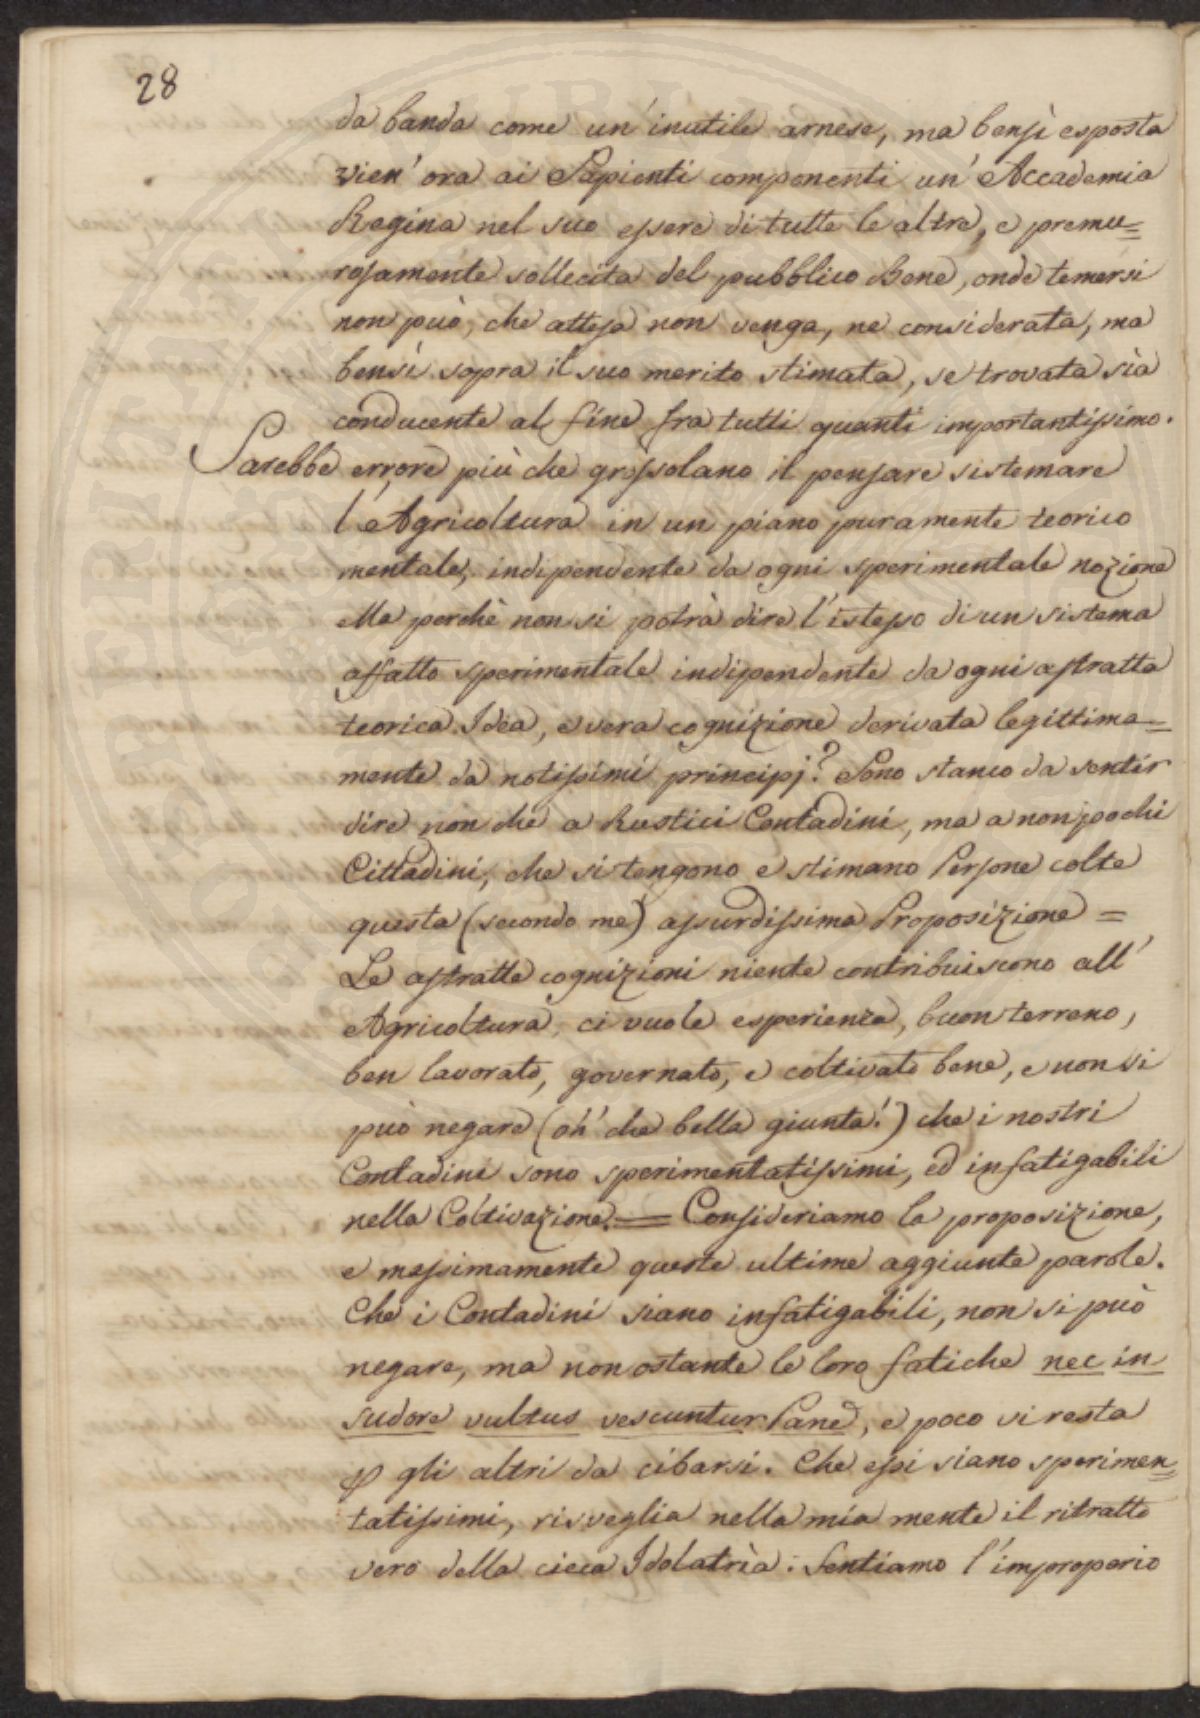 28
da banda come un' inutile arnese, ma bensì esposta
vien' ora ai Sapienti componenti un' Accademia
Regina nel suo essere di tutte le altre, e premu=
rosamente sollecita del pubblico Bene, onde temersi
non può, che attesa non venga, ne considerata, ma
bensì sopra il suo merito stimata, se trovata sia
conducente al fine fra tutti quanti importantissimo.
Sarebbe errore più che grossolano il pensare sistemare
l'Agricoltura in un piano puramente teorico
mentale, indipendente da ogni sperimentale nozione
Ma perchè non si potrà dire l'istesso di un sistema
affatto sperimentale indipendente da ogni astratta
teorica Idea, e vera cognizione derivata legittima=
mente da notissimi principj? Sono stanco da sentir
dire non che a Rustici Contadini, ma a non pochi
Cittadini, che si tengono e stimano Persone colte
questa (secondo me) assurdissima Proposizione =
Le astratte cognizioni niente contribuiscono all'
Agricoltura, ci vuole esperienza, buon terreno,
ben lavorato, governato, e coltivato bene, e non si
può negare (oh' che bella giunta!) che i nostri
Contadini sono sperimentatissimi, ed infatigabili
nella Coltivazione. = Consideriamo la proposizione,
e massimamente queste ultime aggiunte parole.
Che i Contadini siano infatigabili, non si può
negare, ma non ostante le loro fatiche nec in
sudore vultus vescuntur Pane, e poco vi resta
ꝑ gli altri da cibarsi. Che essi siano sperimen=
tatissimi, risveglia nella mia mente il ritratto
vero della cieca Idolatrìa: sentiamo l'improperio